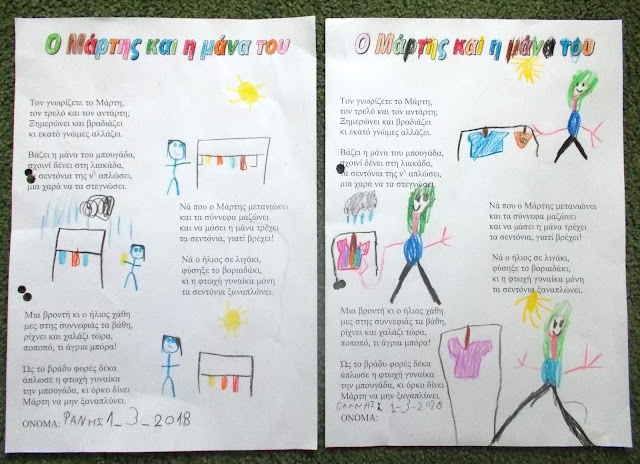 Ο Μάρτης και η μάνα του
Τον γνωρίζετε το Μάρτη,
τον τρελό και τον αντάρτη;
Ξημερώνει και βραδιάζει
κι εκατό γνώμες αλλάζει.
Βάζει η μάνα του μπουγάδα,
σχοινί δένει στη λιακάδα,
τα σεντόνια της ν' απλώσει,
μια χαρά να τα στεγνώσει.
Νά που ο Μάρτης μετανιώνει
και τα σύννεφα μαζώνει
και να μάσει η μάνα τρέχει
τα σεντόνια, γιατί βρέχει!
Νά ο ήλιος σε λιγάκι,
φύσηξε το βοριαδάκι,
κι η φτωχή γυναίκα μόνη
τα σεντόνια ξαναπλώνει.
Μια βροντή κι ο ήλιος χάθη
μες στης συννεφιάς τα βάθη,
ρίχνει και χαλάζι τώρα,
ποποπό, τι άγρια μπόρα!
Ώς το βράδυ φορές δέκα
άπλωσε η φτωχή γυναίκα
την μπουγάδα, κι όρκο δίνει
Μάρτη να μην ξαναπλύνει.
ΟΝΟΜΑ: ΦΑΝΗΣ 1_3_2018
Ο Μάρτης και η μάνα του
Τον γνωρίζετε το Μάρτη,
τον τρελό και τον αντάρτη;
Ξημερώνει και βραδιάζει
κι εκατό γνώμες αλλάζει.
Βάζει η μάνα του μπουγάδα,
σχοινί δένει στη λιακάδα,
τα σεντόνια της ν' απλώσει,
μια χαρά να τα στεγνώσει.
Νά που ο Μάρτης μετανιώνει
και τα σύννεφα μαζώνει
και να μάσει η μάνα τρέχει
τα σεντόνια, γιατί βρέχει!
Νά ο ήλιος σε λιγάκι,
φύσηξε το βοριαδάκι,
κι η φτωχή γυναίκα μόνη
τα σεντόνια ξαναπλώνει.
Μια βροντή κι ο ήλιος χάθη
μες στης συννεφιάς τα βάθη,
ρίχνει και χαλάζι τώρα,
ποποπό, τι άγρια μπόρα!
Ώς το βράδυ φορές δέκα
άπλωσε η φτωχή γυναίκα
την μπουγάδα, κι όρκο δίνει
Μάρτη να μην ξαναπλύνει.
1-3-2018
ΟΝΟΜΑ: